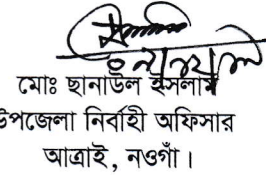 মোঃ ছানাউল ইসলাম
উপজেলা নির্বাহী অফিসার
আত্রাই, নওগাঁ।